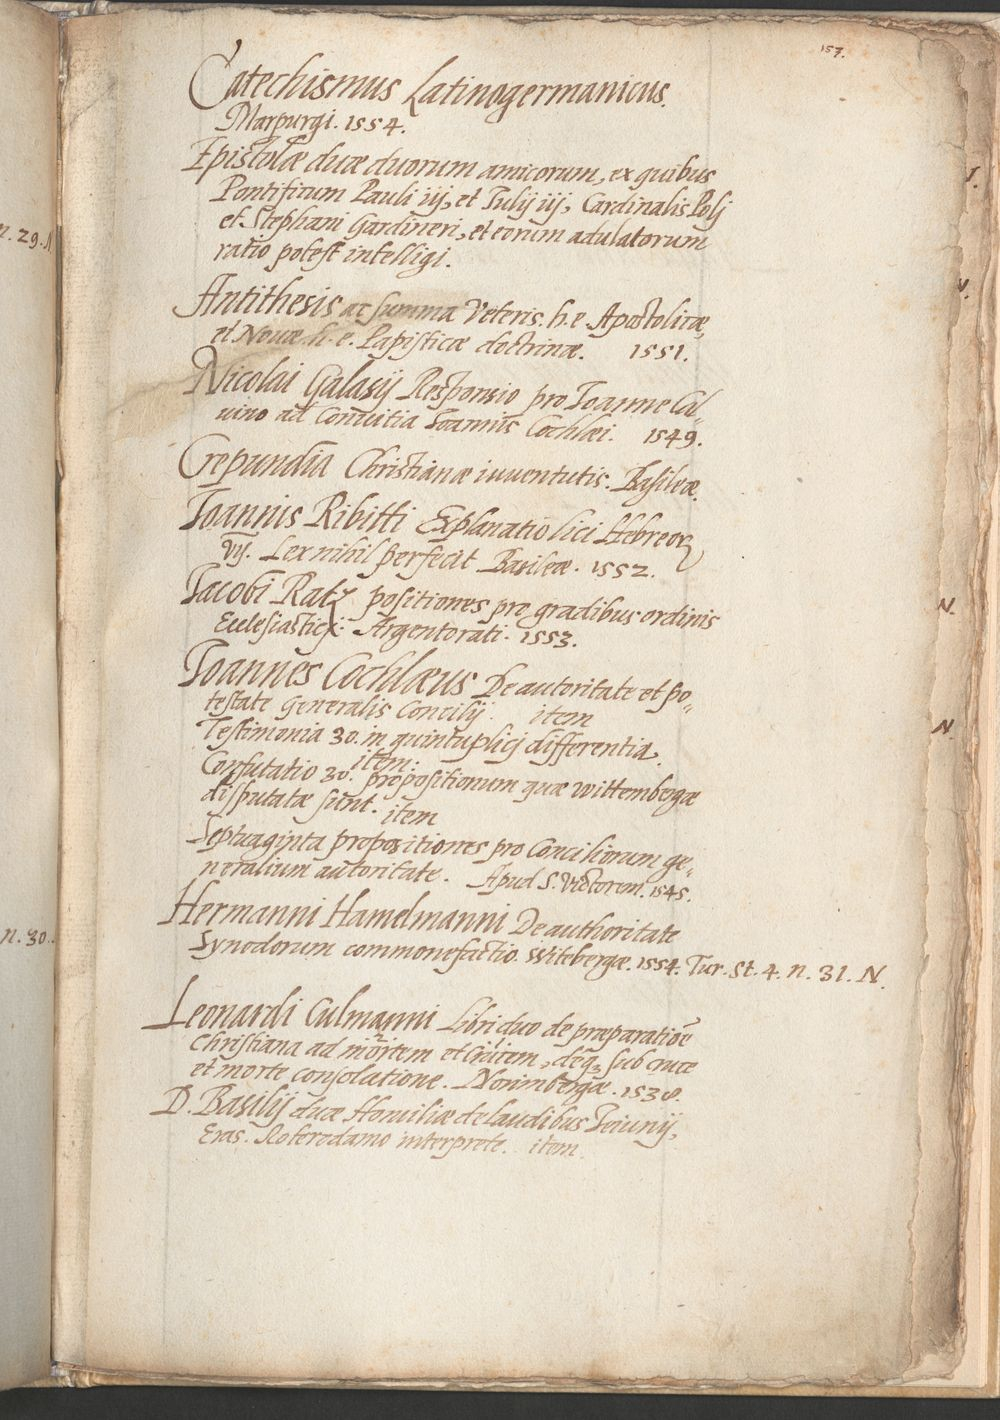 157.
Catechismus Latinogermanicus.
Marpurgi. 1554.
Epistolæ duæ duorum amicorum, ex quibus
Pontificum Pauli iij, et Iulij iij, Cardinalis Polj
et Stephani Gardineri, et eorum adulatorum
ratio potest intelligi.
Antithesis ac summa Veteris. h. e Apostolicæ,
et Novæ h. e. Papisticæ doctrinæ. 1551.
Nicolai Galasij Responsio pro Ioanne Cal„
uino ad Conuitia Ioannis Cochlæi. 1549.
Crepundia Christianæ iuuentutis. Basileæ.
Ioannis Ribitti Explanatio lici Hebreorꝝ
vij. Lex nihil perfecit Basileæ. 1552.
Iacobi Ratz positiones pro gradibus ordinis
Ecclesiastici: Argentorati. 1553.
Ioannes Cochlæus De autoritate et po„
testate Generalis Concilij. item
Testimonia 30. in quintuplici differentia.
item:
Confutatio 30. propositionum quæ Wittembergæ
disputatæ sunt. item
Septuaginta propositiones pro Conciliorum ge„
neralium autoritate. Apud S. Victorem. 1545.
Hermanni Hamelmanni De authoritate
Synodorum commonefactio. Witebergæ. 1554. Tur. St. 4. n. 31. N.
Leonardi Culmanni Libri duo de præparatiōe
Christiana ad mortem et deqꝫ sub cruce
et morte consolatione. Norimbergæ. 1538.
D. Basilij duæ Homiliæ de laudibus Ieiunij,
Eras. Roterodamo interprete. item
n. 29. N
n. 30.
N.
N.